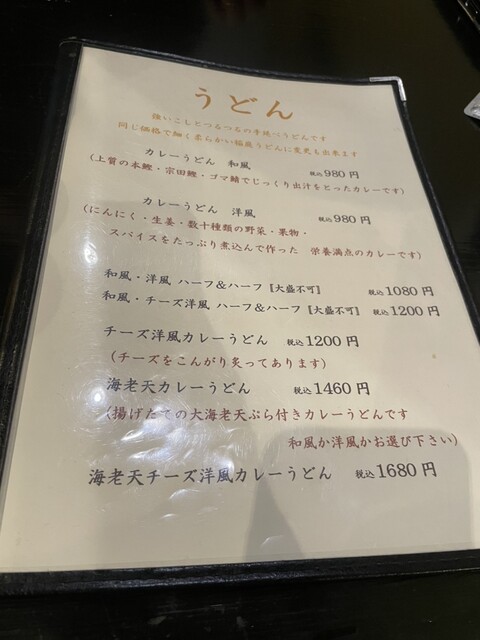 うどん
強いこしとつるつるの手延べうどんです
同じ価格で細く柔らかい稲庭うどんに変更も出来ます
カレーうどん 和風 税込980円
(上質の本鰹・宗田鰹・ゴマ鯖でじっくり出汁をとったカレーです)
カレーうどん 洋風 税込980円
(にんにく・生姜・数十種類の野菜・果物・
スパイスをたっぷり煮込んで作った 栄養満点のカレーです)
和風・洋風 ハーフ&ハーフ [大盛不可] 税込1080円
和風・チーズ洋風 ハーフ&ハーフ [大盛不可] 税込1200円
チーズ洋風カレーうどん 税込1200円
(チーズをこんがり炙ってあります)
海老天カレーうどん 税込1460円
(揚げたての大海老天ぷら付きカレーうどんです
和風か洋風かお選び下さい)
海老天チーズ洋風カレーうどん 税込1680円